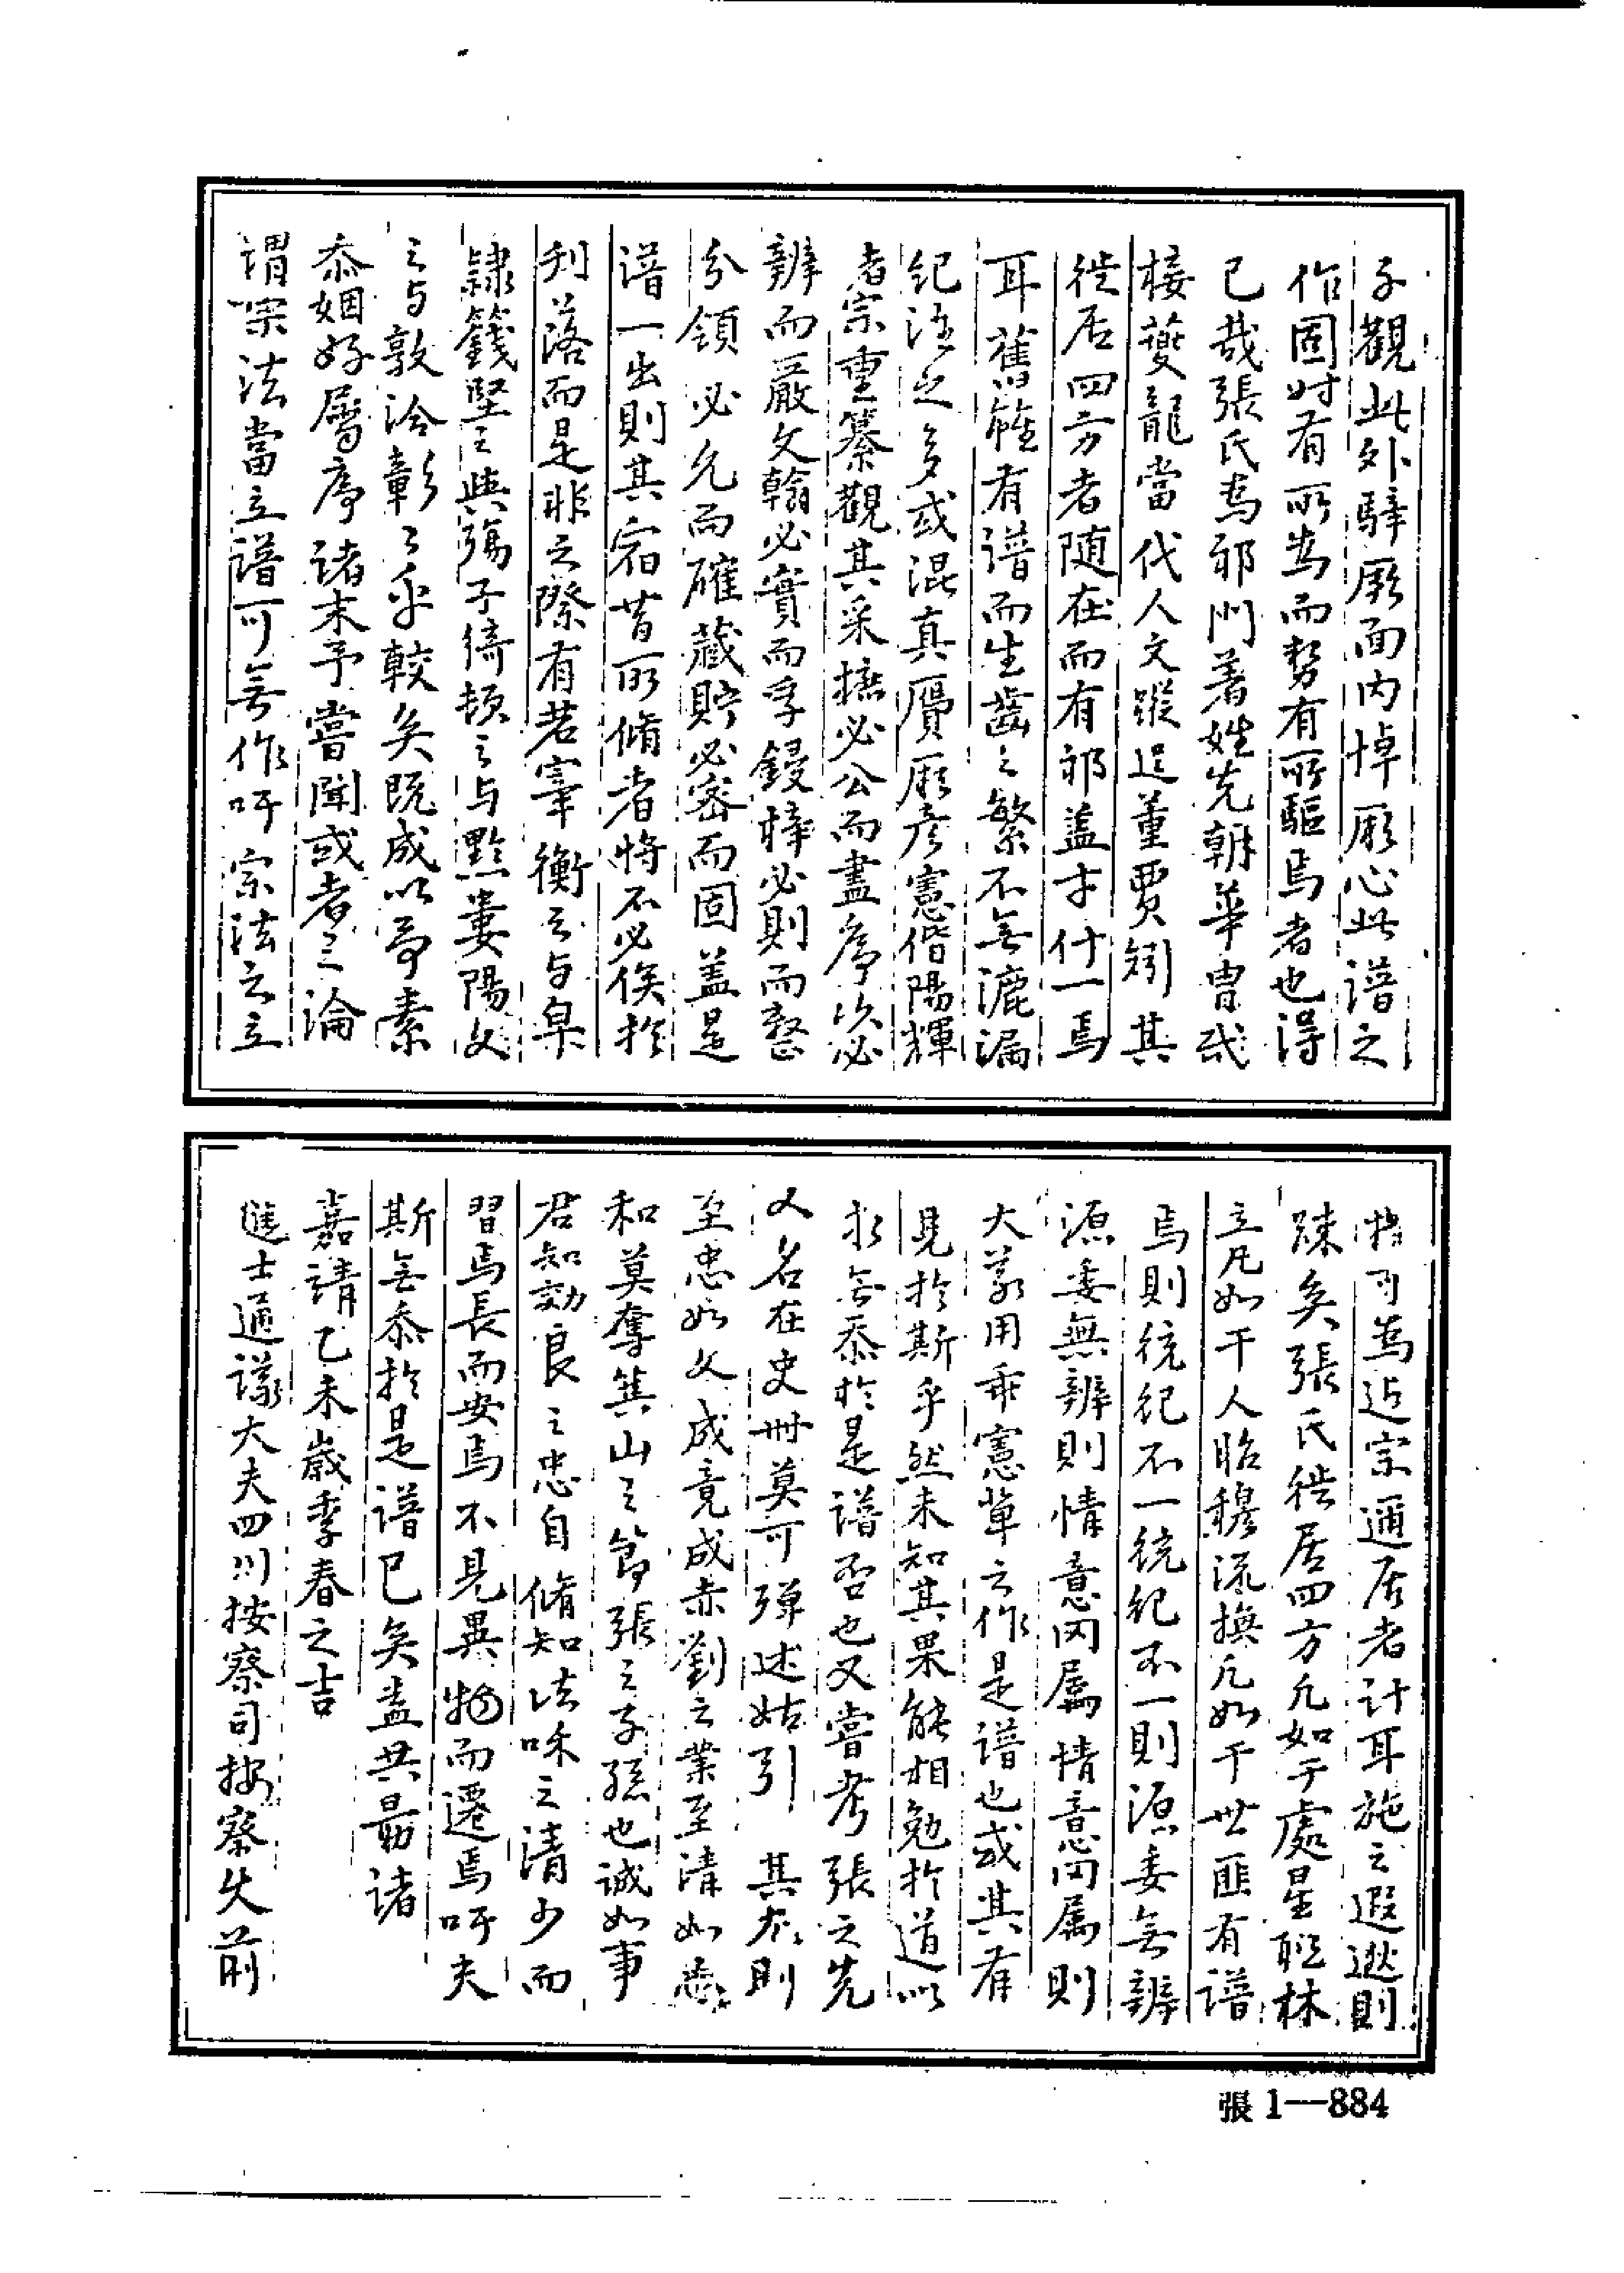 子觀此外騂厥面内悼厥心此譜之
作固时有所为而势有所驅焉者也得
已哉張氏为祁门着姓先朝華胄或
接夔龍當代人文蹤迟董賈矧其
徙居四方者随在而有祁盖才什一焉
耳舊雖有譜而生齒之繁不無漉漏
纪注之多或混真贋厥彦憲偕陽輝
者宗重纂觀其采摭必公而盡序次必
辨而嚴文翰必實而孚鋟梓必則而整
分領必允而確藏貯必密而固盖是
譜一出則其宿昔所脩者将不必俟於
刋落而是非之際有若
衡之与皁
隷籛堅之與殤子猗顿之与黔婁陽文
之与敦洽彰之乎較矣既成以予素
忝姻好屬序诸末予嘗聞或者之論
謂宗法當立譜可無作吁宗法之立
特可為近宗通居者计耳施之遐逖則
踈矣張氏徙居四方凡如干處星聅林
立凡如干人昭穆流換凡如干世匪有譜
焉則统纪不一统纪不一則源委無辨
源委無辨則情意罔属情意罔属則
大義用乖憲軰之作是譜也或其有
見於斯乎然未知其果能相勉於道以
求無忝於是譜否也又嘗考張之先
人名在史冊莫可殚述姑引其尤則
至忠如文成竟成赤劉之業至清如志
和莫奪箕山之節張之子孫也诚如事
君知効良之忠自脩知法味之清少而
習焉長而安焉不見異物而遷焉吁夫
斯無忝於是譜巳矣盍共勗诸
嘉請乙未嵗季春之吉
進士通議大夫四川按察司按察使前
張1—884